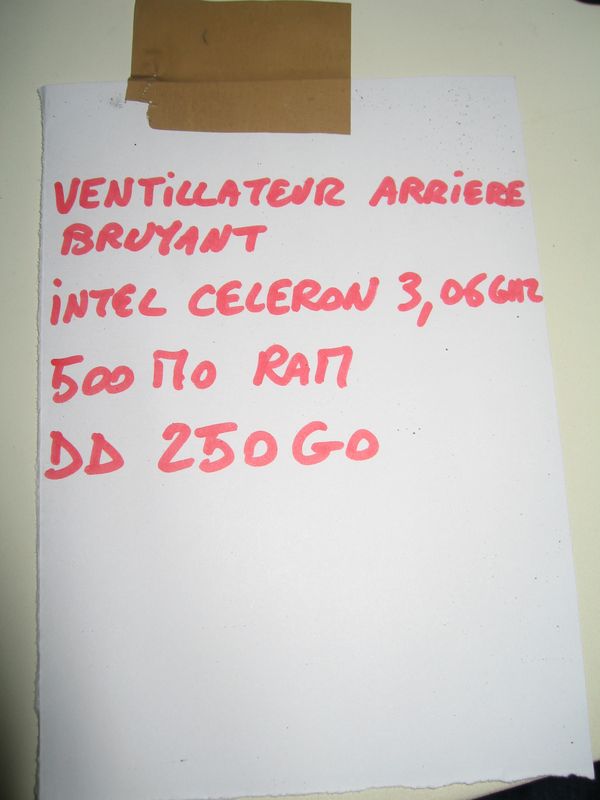 VENTiLLATEUR ARRiERE
BRUYANT
iNTEL CELERON 3,06GHZ
500 MO RAM
DD 250GO